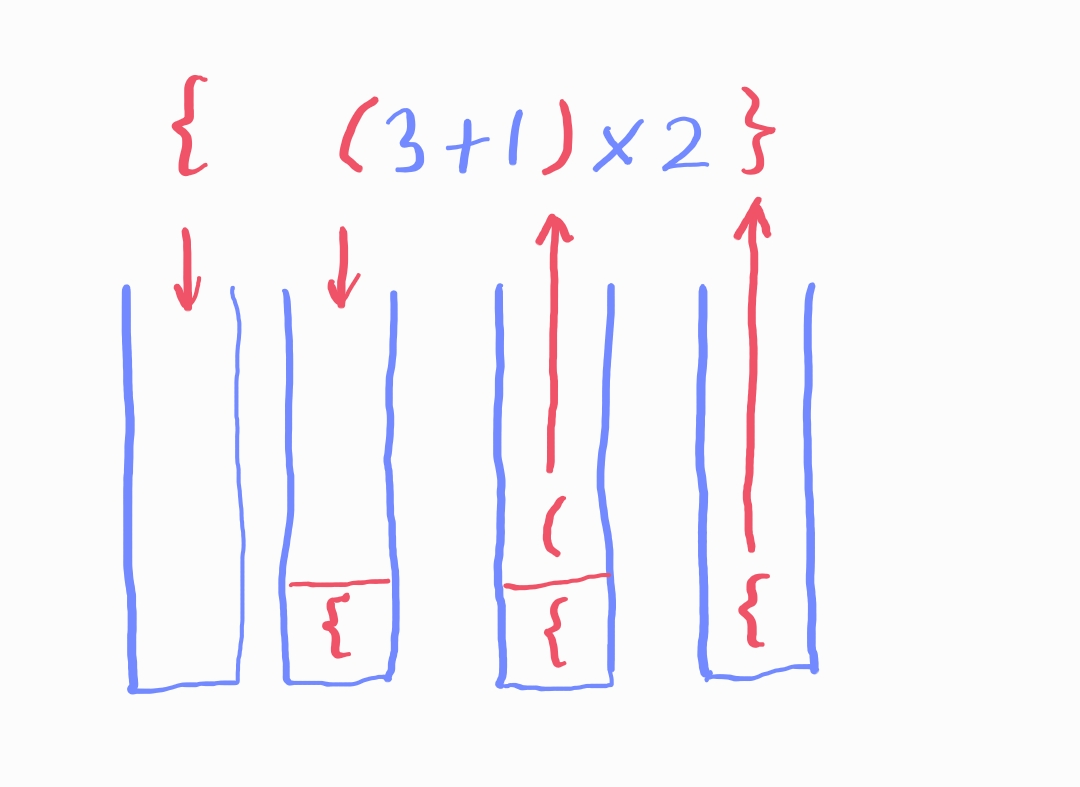 { (3+1)×2}
(
{ { {